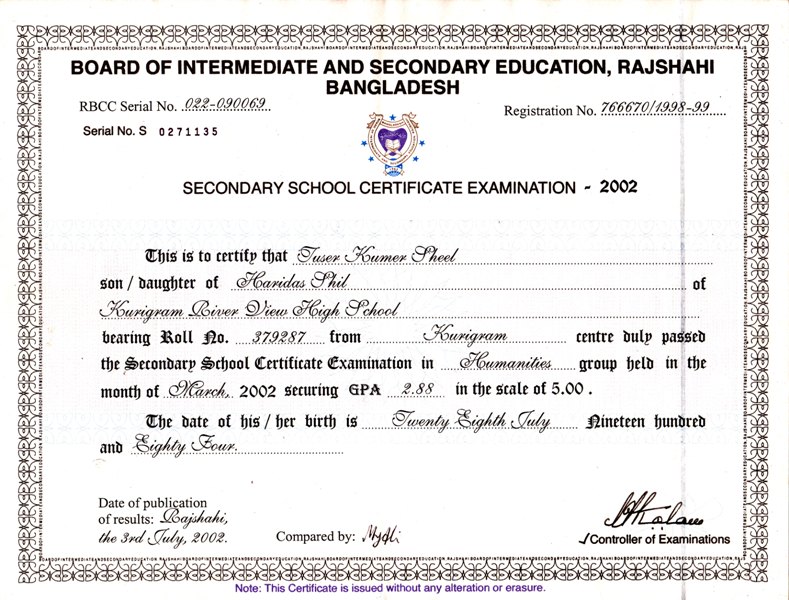 BOARD OF INTERMEDIATE AND SECONDARY EDUCATION, RAJSHAHI
BANGLADESH
RBCC Serial No. 022-090069
Registration No. 766670/1998-99
Serial No. S 0271135
SECONDARY SCHOOL CERTIFICATE EXAMINATION - 2002
This is to certify that Tuser Kumer Sheel
son / daughter of Haridas Shil of
Kurigram River View High School
bearing Roll No. 379287 from Kurigram centre duly passed
the Secondary School Certificate Examination in Humanities group held in the
month of March, 2002 securing GPA 2.88 in the scale of 5.00 .
The date of his / her birth is Twenty Eighth July Nineteen hundred
and Eighty Four.
Date of publication
of results: Rajshahi,
the 3rd July, 2002.
Compared by:
Controller of Examinations
Note: This Certificate is issued without any alteration or erasure.